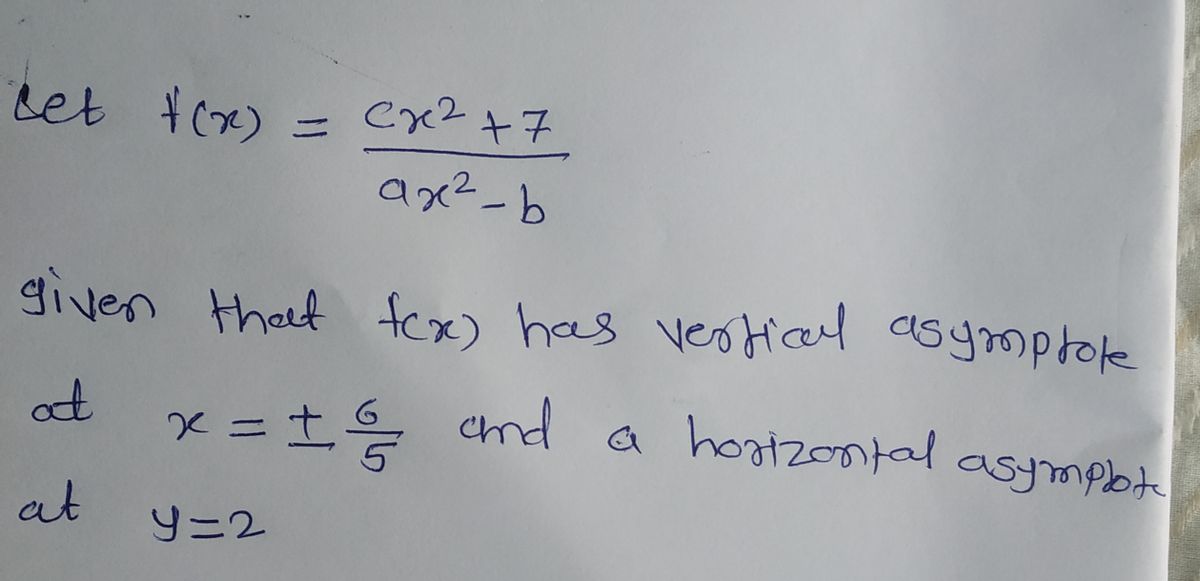 Let f(x) = cx² + 7
ax² - b
given that f(x) has vertical asymptote
at x = ± 6/5 and a horizontal asymptote
at y = 2